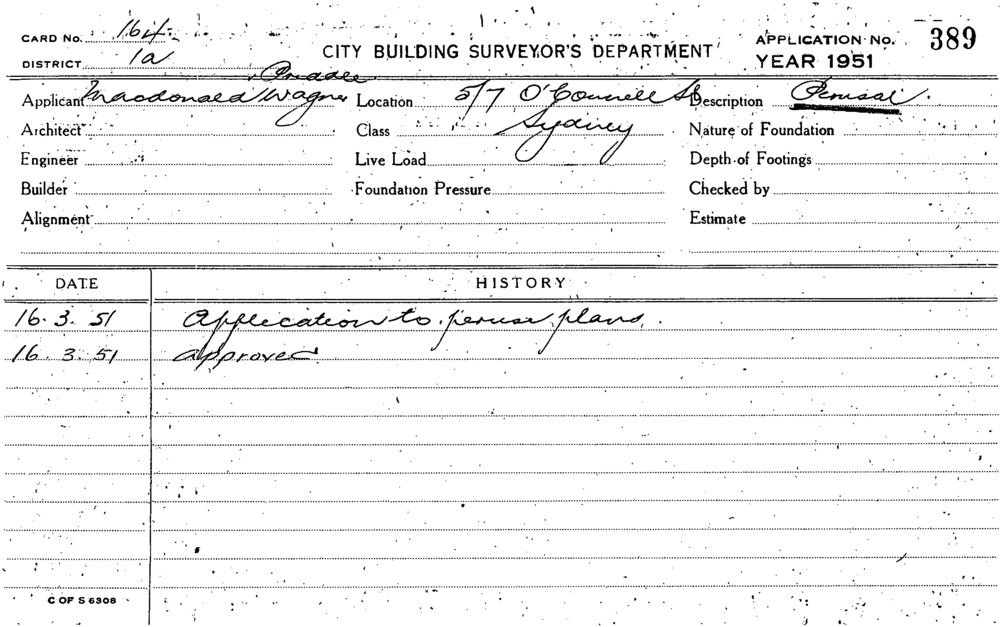 CARD No. 164
DISTRICT 1a
CITY BUILDING SURVEYOR'S DEPARTMENT
APPLICATION No. 389
YEAR 1951
Applicant Macdonald Wagner & Priddle
Location 5/7 O'Connell St Sydney
Description Perusal.
Architect
Class
Nature of Foundation
Engineer
Live Load
Depth of Footings
Builder
Foundation Pressure
Checked by
Alignment
Estimate
DATE HISTORY
16.3.51 Application to peruse plans.
16.3.51 approved
C OF S 6308